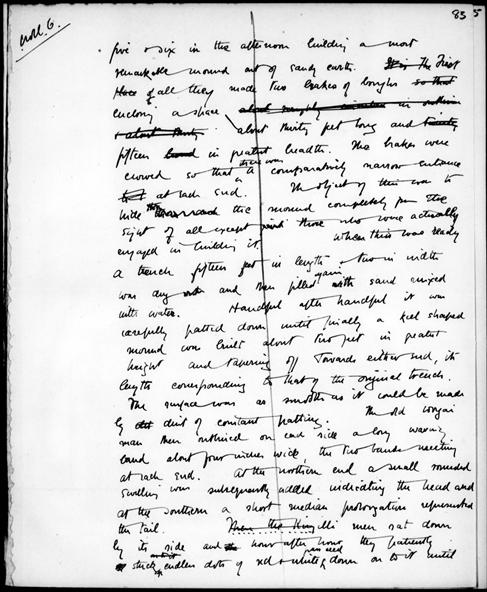 vol. 6.
83 5
five & six in the afternoon building a most
remarkable mound out of sandy earth. It is The First
place of all they made two brakes of boughs so that
enclosing a space about roughly in
& about thirty about thirty feet long and twenty
fifteen broad in greatest breadth. The brakes were
curved so that there was a comparatively narrow entrance
at each end. The object of them was to
hide the mound completely from the
sight of all except those who were actually
engaged in building it. When this was ready
a trench fifteen feet in length & two in width
was dug and then filled again with sand mixed
with water. Handful after handful it was
carefully patted down until finally a keel shaped
mound was built about two feet in greatest
height and tapering off towards either end, its
length corresponding to that of the original trench.
The surface was as smooth as it could be made
by dint of constant patting. The old
man then outlined on each side a long wavy
band about four inches wide, the two bands meeting
at each end. At the northern end a small rounded
swelling was subsequently added indicating the head and
at the southern a short median prolongation represented
the tail. Then the Kingilli men sat down
by its side and hour after hour they patiently
stuck endless dots of red & white down on to it until